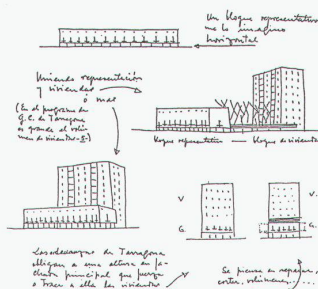 Un bloque representativo
me lo imagino
horizontal
Uniendo representación
y viviendas
ó mas
(En el programa de
G.C. de Tarragona
es grande el volu-
men de viviendas -8-)
bloque representativo — bloque de viviendas
V
G.
V.
G.
Las ordenanzas de Tarragona
obligan a una altura en fa-
chada principal que fuerza
a traer a ella las viviendas
Se piensa en separar,
cortar, volúmenes...